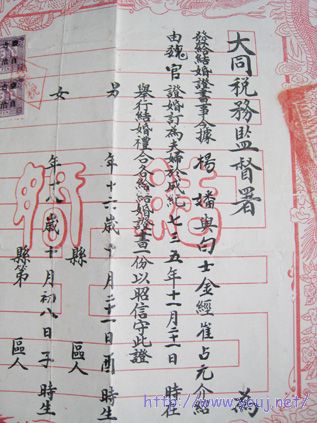 大同税務監督署 為
發給結婚證書事今據 楊埇與向士金經崔占元介紹
由魏官證婚訂為夫婦於成紀七三五年十一月二十一日 時在
舉行結婚禮合各給結婚證書一份以昭信守此證
男 年十六歲十月二十一日酉時生
縣 區人
女 年十八歲十一月初八日子時生
縣第 區人